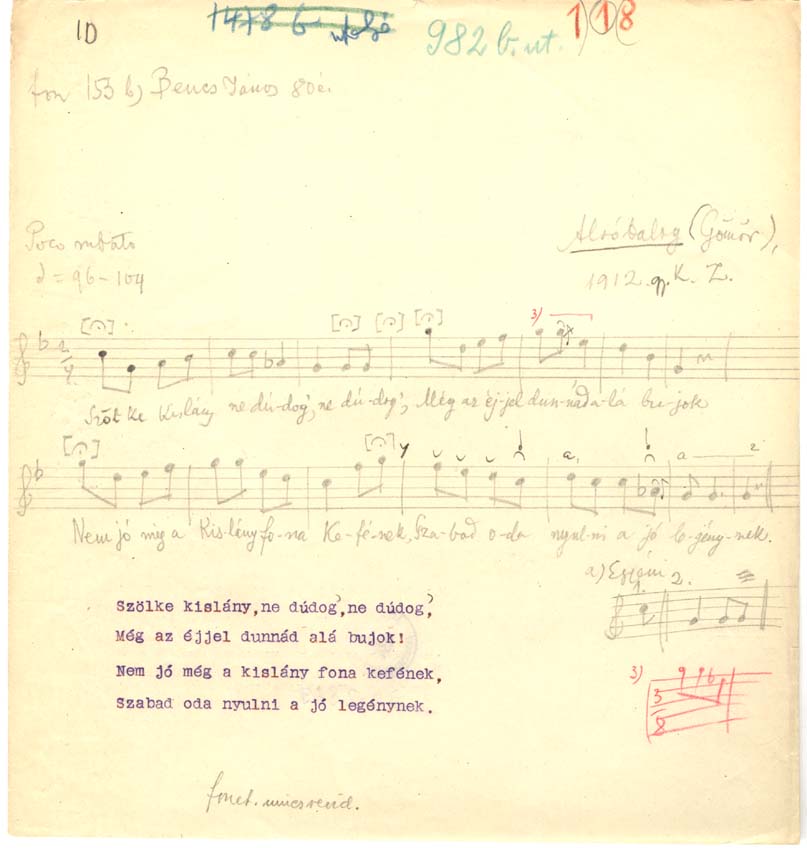 1D
1478 b
982 b. ut.
118
fon 153 b) Bencs János 80 é.
Poco rubato
Alsóbalog (Gömör),
= 96-104
1912. K. Z.
3)
Szöl-ke kislány ne dú-dog', ne dú-dog', Még az éj-jel dun-nád a-lá bu-jok
a,
a
2
Nem jó még a kis-lány fo-na ke-fé-nek, Sza-bad o-da nyul-ni a jó le-gény-nek.
a)
1.
2.
Szölke kislány,ne dúdog',ne dúdog',
Még az éjjel dunnád alá bujok!
Nem jó még a kislány fona kefének,
Szabad oda nyulni a jó legénynek.
3)
3
8
fonet. nincs revid.